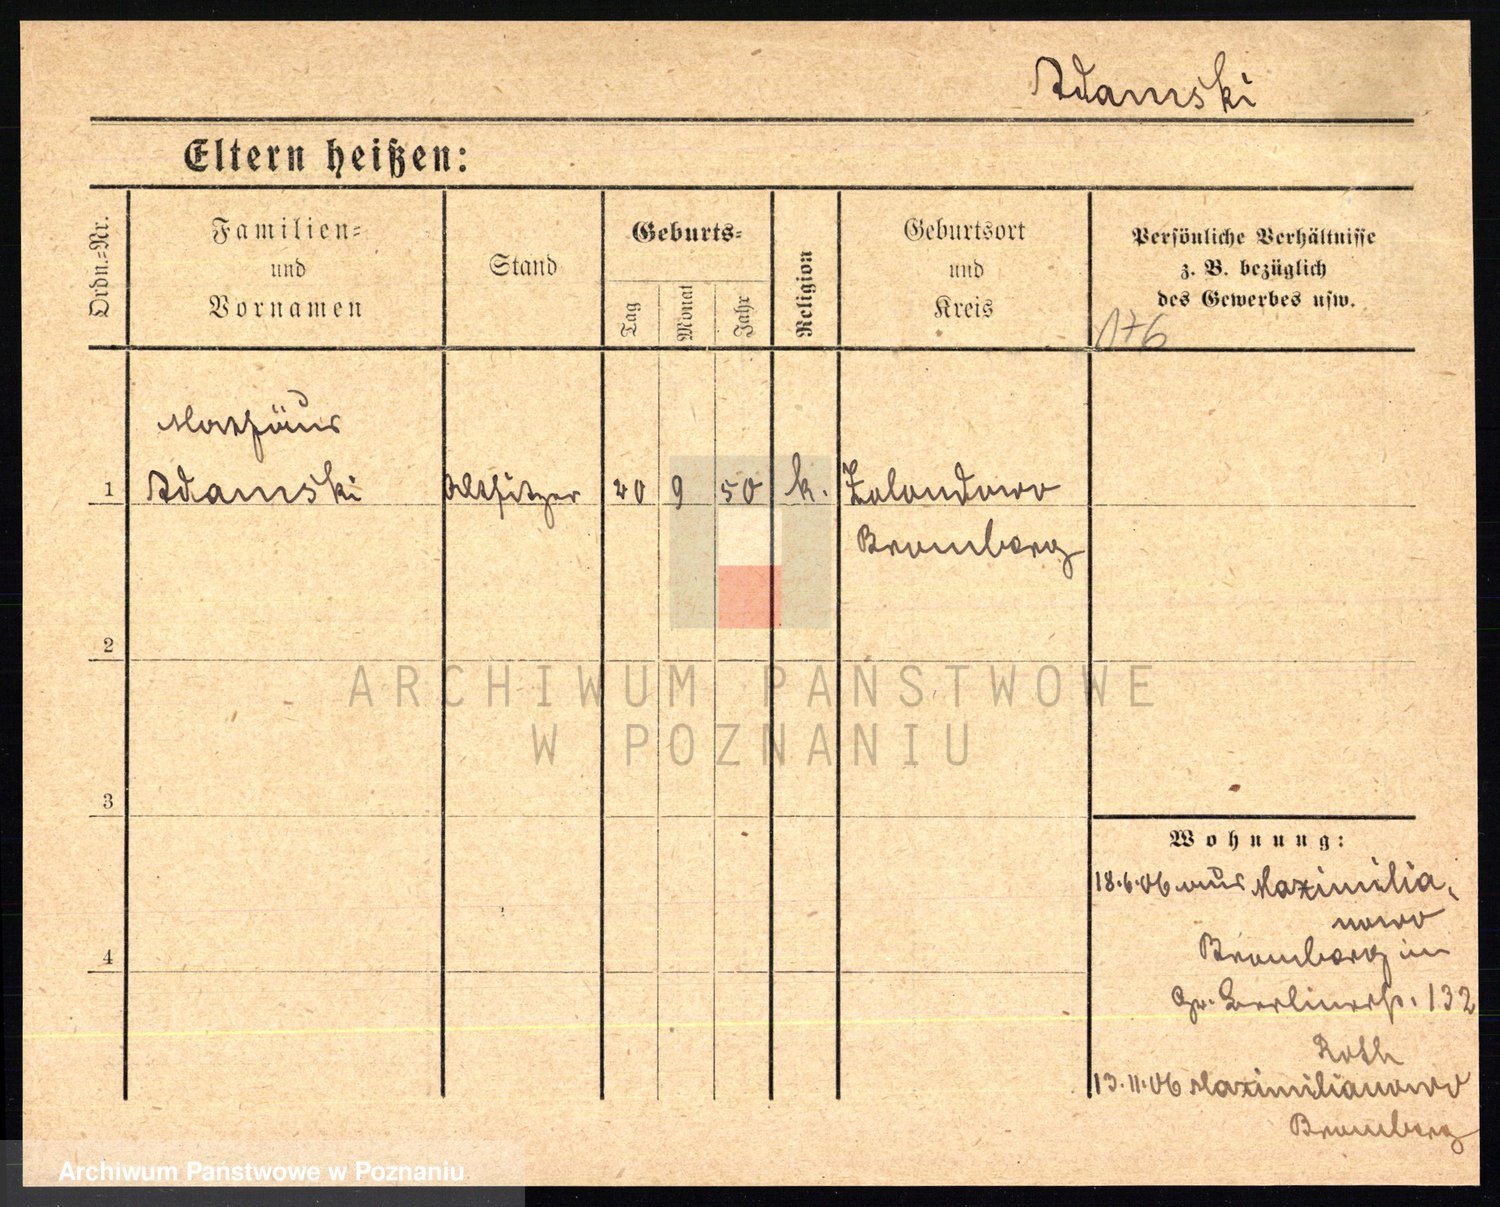 Adamski
Eltern heißen:
Ordn.-Nr.
Familien-
und
Vornamen
Stand
Geburts-
Tag
Monat
Jahr
Religion
Geburtsort
und
Kreis
Persönliche Verhältnisse
z. B. bezüglich
des Gewerbes usw.
176
Mathäus
1 Adamski Altsitzer 20 9 50 k. Zolondowo
Bromberg
2
3
4
Wohnung:
18.6.06 aus Maximilia-
nowo
Bromberg in
Gr. Berlinerstr. 132
Roth
13.11.06 Maximilianowo
Bromberg
ARCHIWUM PAŃSTWOWE
W POZNANIU
Archiwum Państwowe w Poznaniu